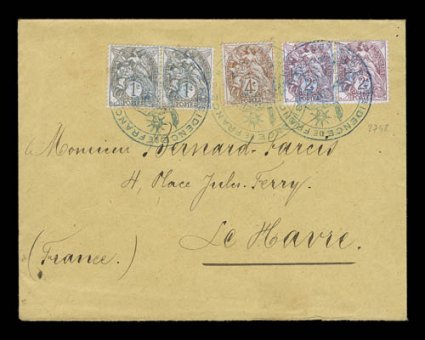 1c 1c 4c 2c 2c
RÉSIDENCE DE FRANCE
Monsieur Bernard-Farcis
4, Place Jules-Ferry.
Le Havre.
(France.)